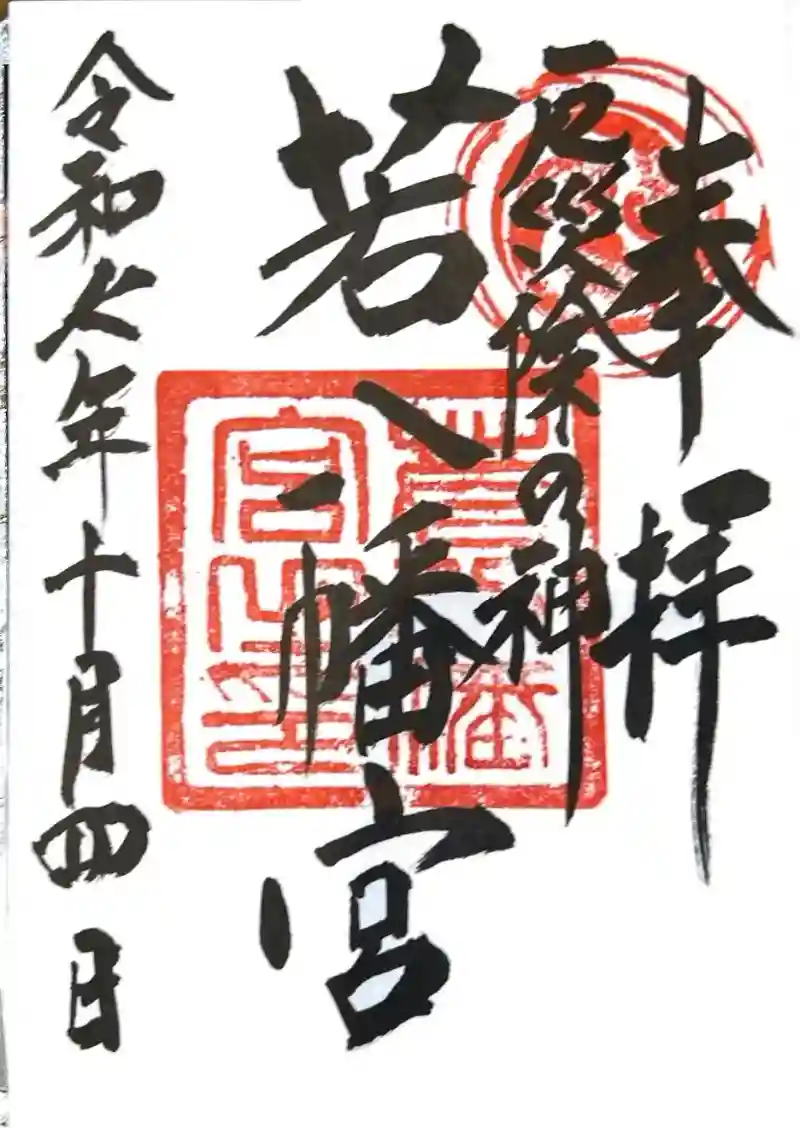 奉拝
厄災除の神
若八幡宮
令和七年十月四日
若八幡
宮之印